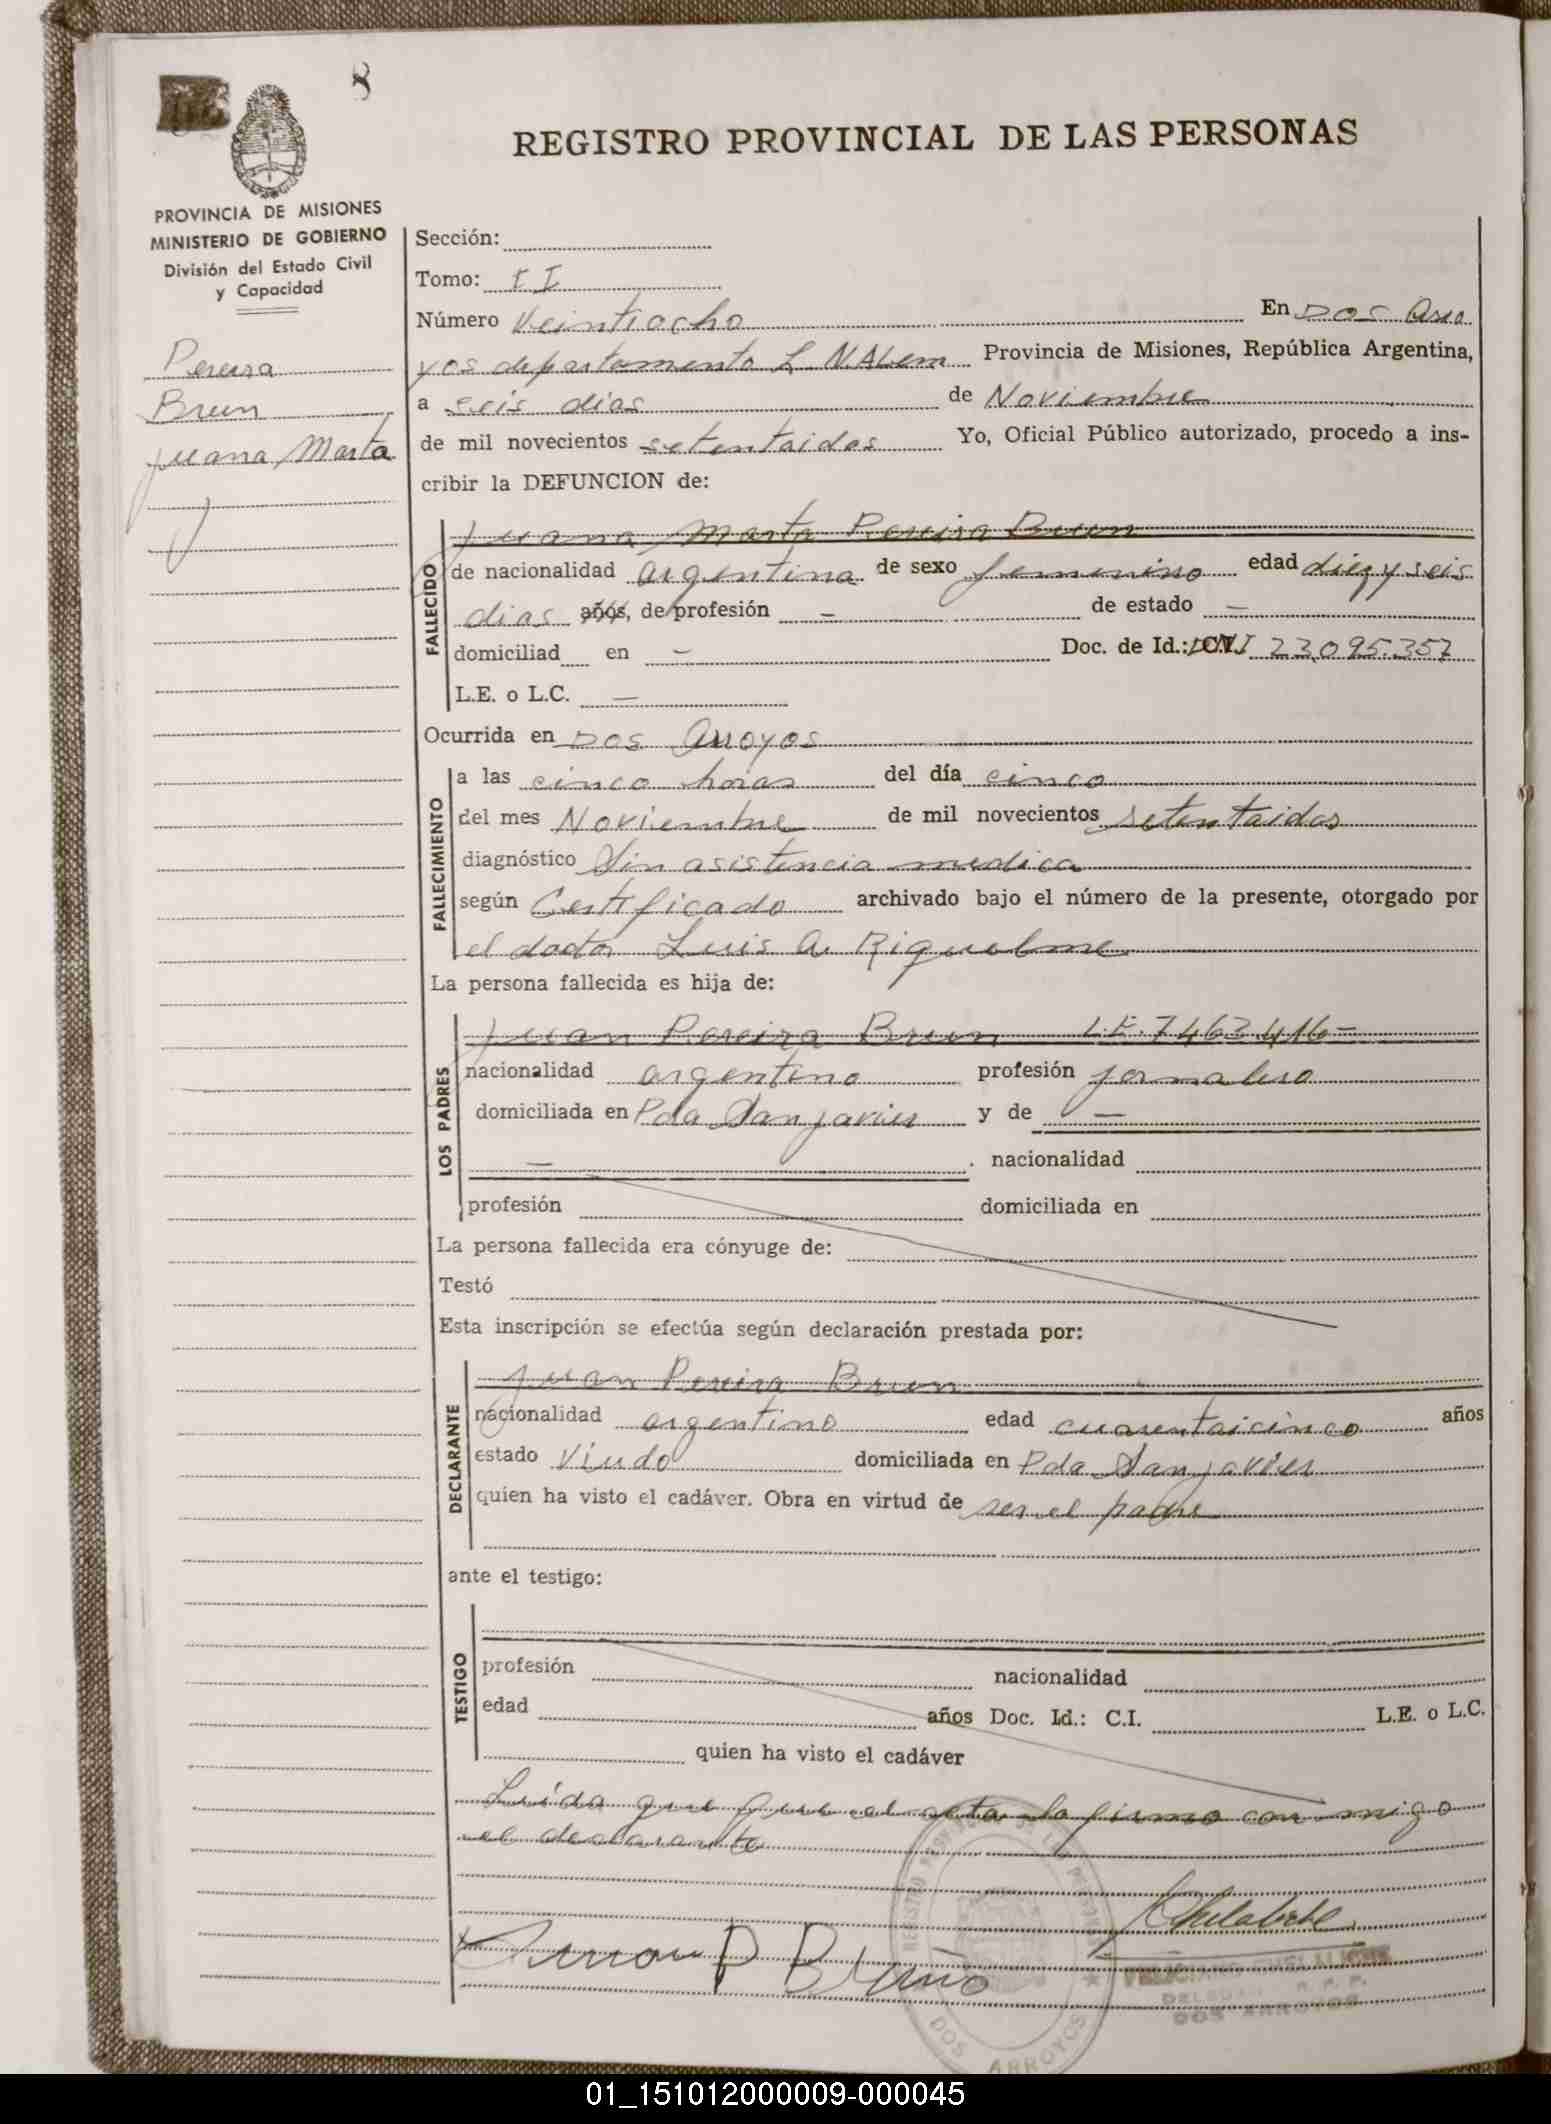 8
REGISTRO PROVINCIAL DE LAS PERSONAS
PROVINCIA DE MISIONES
MINISTERIO DE GOBIERNO
División del Estado Civil
y Capacidad
Pereira
Brun
Juana Marta
Sección:
Tomo: II
Número Veintiocho En Dos Arro
yos departamento L. N. Alem Provincia de Misiones, República Argentina,
a seis dias de Noviembre
de mil novecientos setentaidos Yo, Oficial Público autorizado, procedo a ins-
cribir la DEFUNCION de:
FALLECIDO
Juana Marta Pereira Brun
de nacionalidad argentina de sexo femenino edad diez y seis
dias años, de profesión — de estado —
domiciliad en — Doc. de Id.: DNI 23.095.357
L.E. o L.C. —
Ocurrida en Dos Arroyos
FALLECIMIENTO
a las cinco horas del día cinco
del mes Noviembre de mil novecientos setentaidos
diagnóstico Sin asistencia medica
según Certificado archivado bajo el número de la presente, otorgado por
el doctor Luis A. Riquelme
La persona fallecida es hija de:
LOS PADRES
Juan Pereira Brun L.E. 7463416-
nacionalidad argentino profesión jornalero
domiciliada en Pda San javier y de —
— . nacionalidad
profesión domiciliada en
La persona fallecida era cónyuge de:
Testó
Esta inscripción se efectúa según declaración prestada por:
DECLARANTE
Juan Pereira Brun
nacionalidad argentino edad cuarentaicinco años
estado Viudo domiciliada en Pda San javier
quien ha visto el cadáver. Obra en virtud de ser el padre
ante el testigo:
TESTIGO
profesión nacionalidad
edad años Doc. Id.: C.I. L.E. o L.C.
quien ha visto el cadáver
Leida que fue el acta la firma con migo
el declarante
REGISTRO PROVINCIAL DE LAS PERSONAS
DOS ARROYOS
DOS ARROYOS
01_151012000009-000045